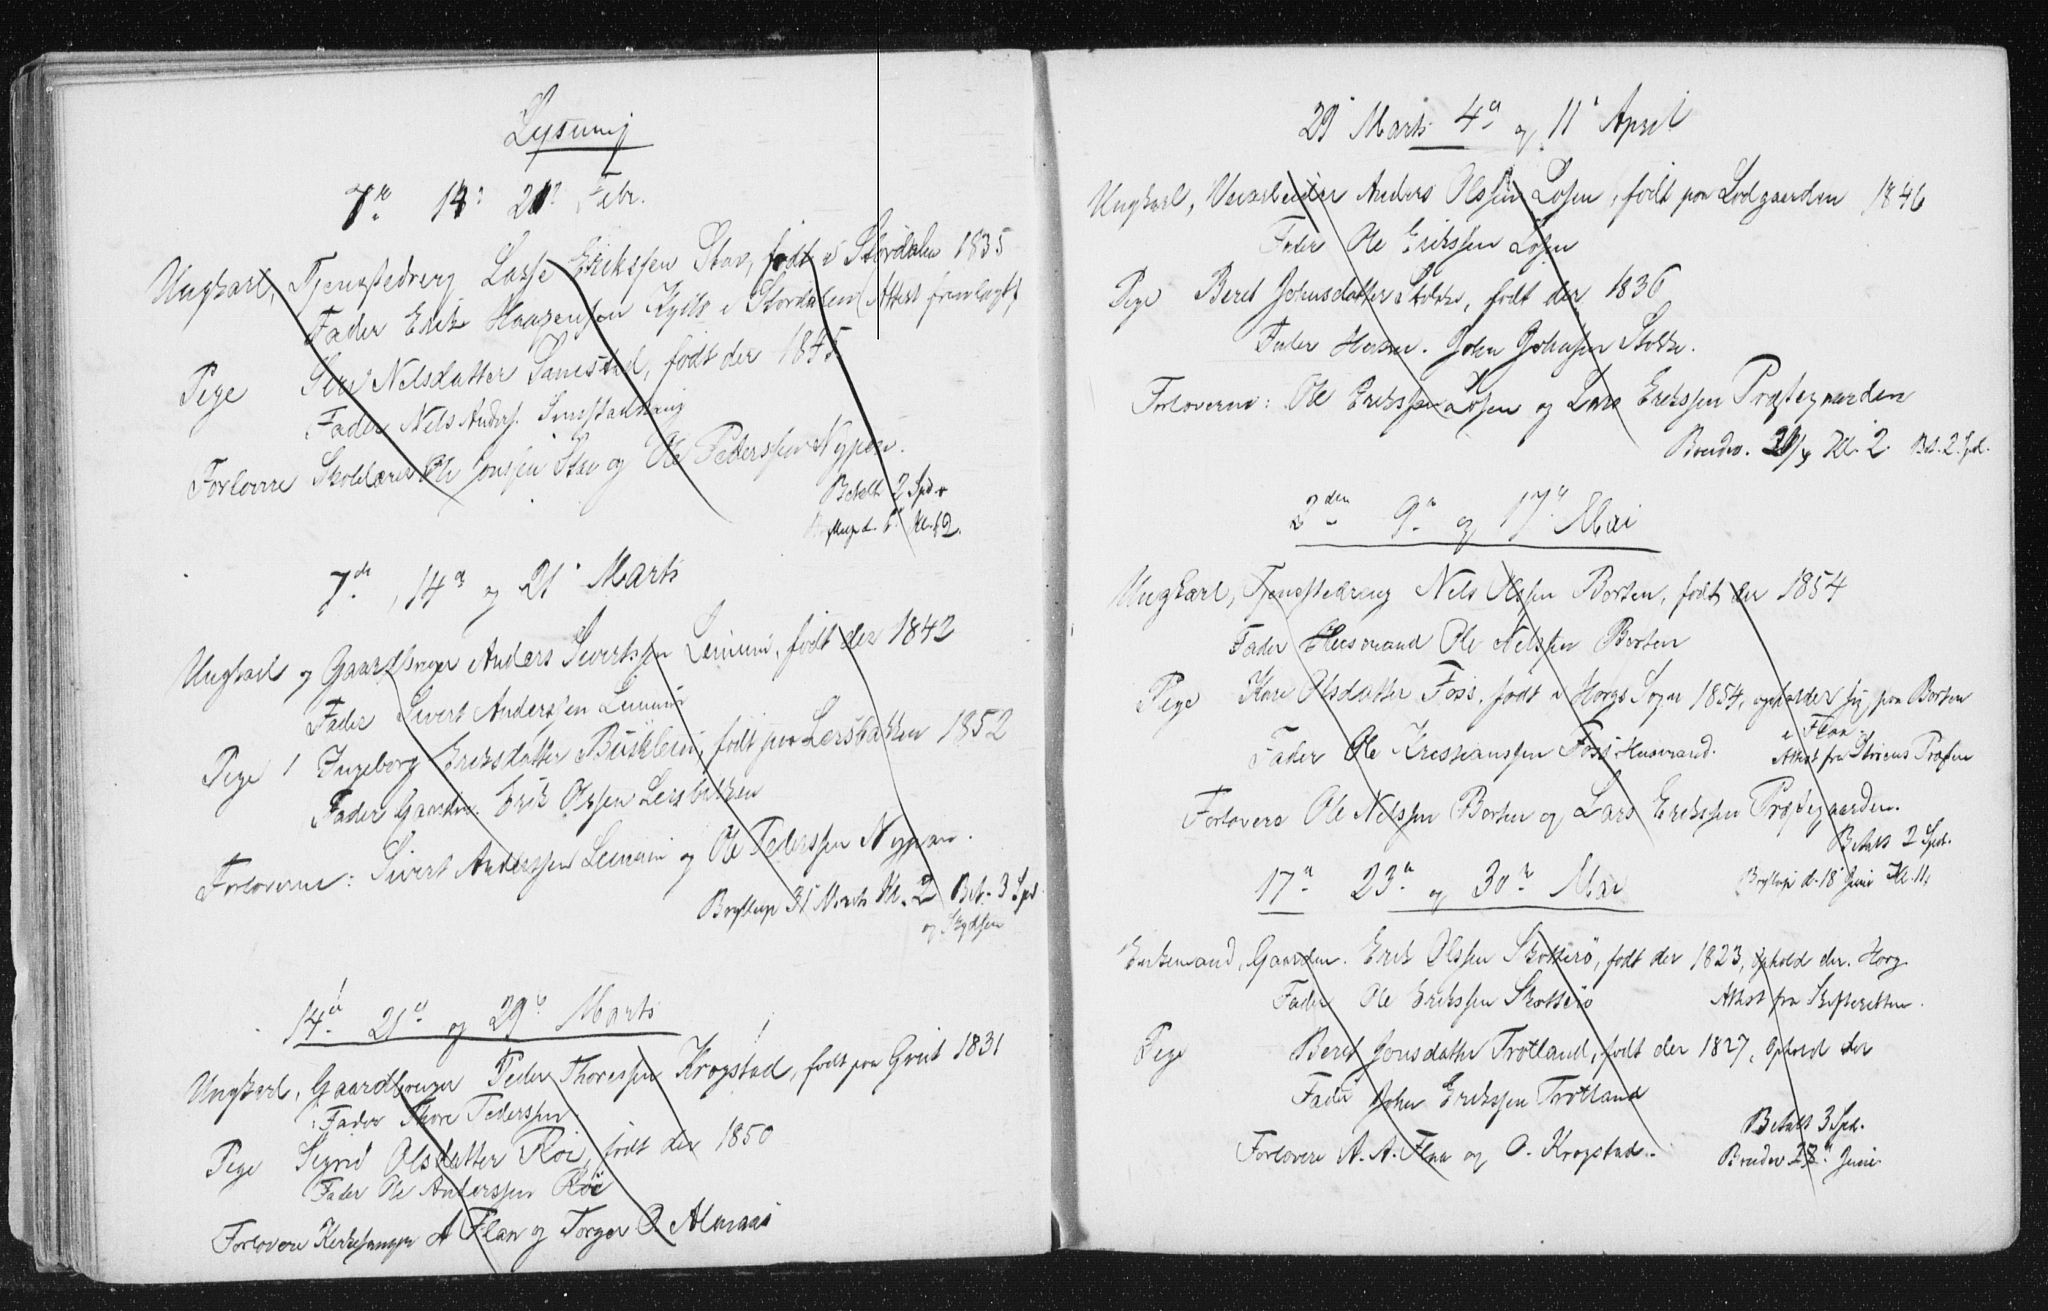 Lysning
7de 14 21 Febr.
Ungkarl, Tjenestedreng Lasse Eriksen Stav, født i Størdalen 1835
Fader Erik Haagensen i Størdalen (Attest fremlagt)
Pige Siri Nelsdatter født der 1845
Fader Nels Anders.
Forlovere Skolelærer Ole Jonsen Stav og Ole Pedersen Nypan.
Betalt 2 Spd.
Kl. 12.
7de, 14de og 21 Marts
Ungkarl og Gaardbruger Anders Sivertsen Lemun, født der 1842
Fader Sivert Andersen Lemun
Pige Ingeborg Eriksdatter Busklein, født paa Lersbakken 1852
Fader Gaardm. Erik Olsen Lersbakken
Forloverne: Sivert Andersen Lemun og Ole Pedersen Nypan.
Bryllup 31 Marts Kl. 2 Bet. 3 Spd
og Skydsen
14de 21de og 29de Marts
Ungkarl, Gaardbruger Peder Thoresen Krogstad, født paa Grut 1831
Fader Thore Pedersen
Pige Sigrid Olsdatter Røe, født der 1850
Fader Ole Andersen Røe
Forlovere Kirkesanger A Flaa og Torger O. Almaas
29 Marts 4de og 11 April
Ungkarl, Anders Olsen Løsen, født paa Lodgaarden 1846
Fader Ole Eriksen Løsen
Pige Beret Johnsdatter Stokke, født der 1836
Fader Husm. John Johnsen Stokke.
Forloverne: Ole Eriksen Løsen og Lars Eriksen Præstegaarden
Brudev. Kl. 2. Bet. 2 Spd.
2den 9de og 17de Mai
Ungkarl, Tjenestedreng Nels Olsen Borten, født der 1854
Fader Husmand Ole Nelsen Borten
Pige Kari Olsdatter Foss, født i Horgs Sogn 1854, opholder sig paa Borten
i Flaa
Fader Ole Kristiansen Foss Husmand.
Attest fra Størens Præst
Forlovere Ole Nelsen Borten og Lars Eriksen Præstegaarden.
Betalt 2 Spd.
Bryllup d. 18 Juni Kl. 11
17de 23de og 30te Mai
Enkemand, Gaardm. Erik Olsen Skotterø, født der 1823, Ophold der. Horg
Fader Ole Eriksen Skotterø
Attest fra Skifteretten.
Pige Beret Jonsdatter Trøtland, født der 1827, Ophold der
Fader John Eriksen Trøtland
Betalt 3 Spd.
Forlovere A. A. Flaa og O. Krogstad.
Brudev 28 Juni